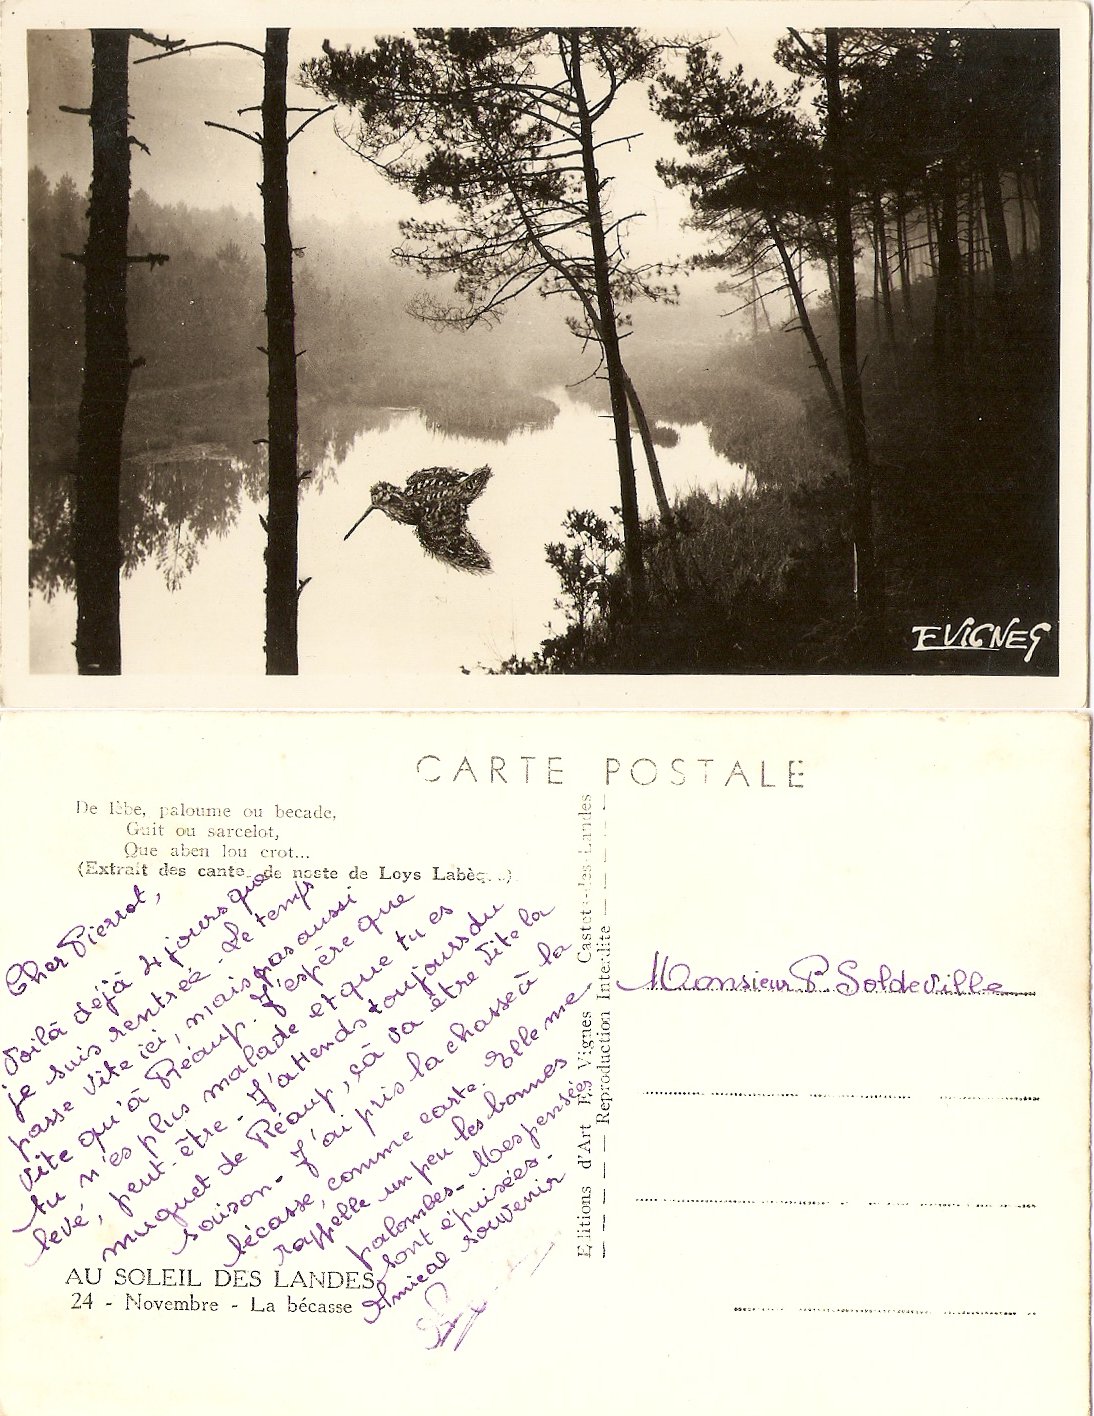 E VIGNES
CARTE POSTALE
De lèbe, paloume ou becade,
Guit ou sarcelot,
Que aben lou crot...
(Extrait des cante de noste de Loys Labèq...)
Cher Pierrot,
Voilà déjà 4 jours que
je suis rentrée. Le temps
passe vite ici, mais pas aussi
vite qu'à Réaup. J'espère que
tu n'es plus malade et que tu es
levé, peut-être - J'attends toujours du
muguet de Réaup, çà va être vite la
saison - J'ai pris la chasse à la
bécasse, comme carte. Elle me
rappelle un peu les bonnes
palombes - Mes pensées
sont épuisées -
Amical souvenir -
AU SOLEIL DES LANDES
24 - Novembre - La bécasse
Editions d'Art Es Vignes - Castets-des-Landes
— — — Reproduction Interdite — — —
Monsieur P. Soldeville